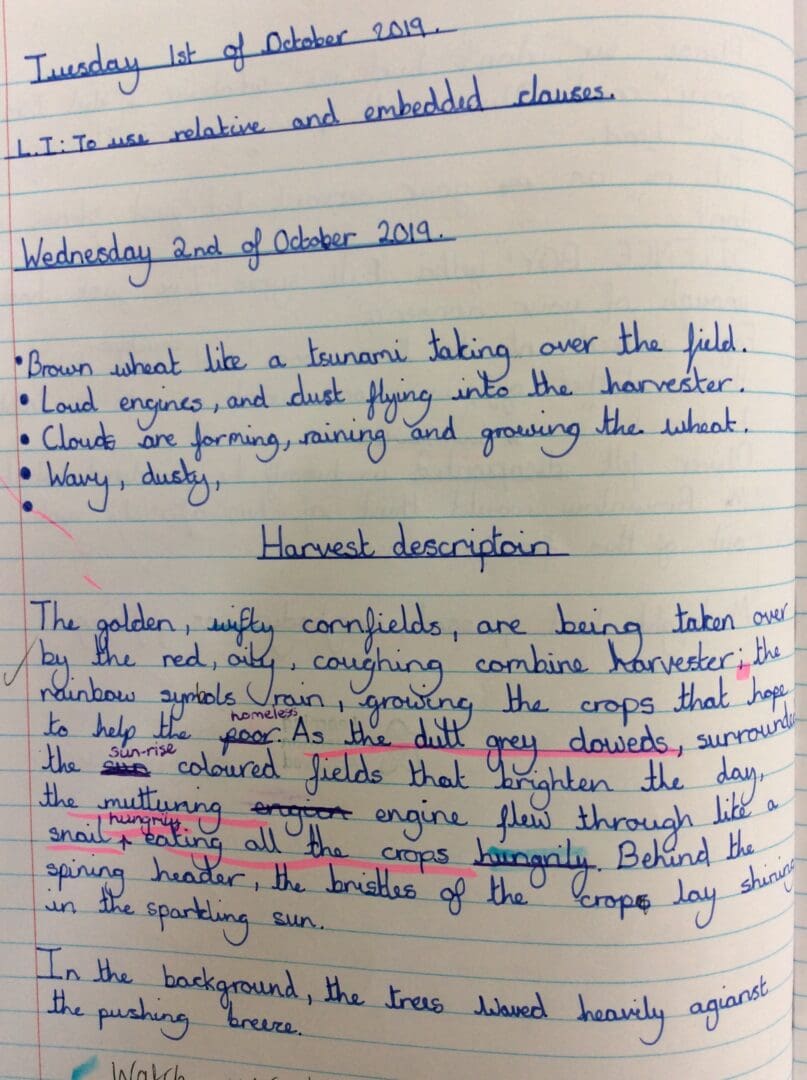 Tuesday 1st of October 2019.
L.I: To use relative and embedded clauses.
Wednesday 2nd of October 2019.
• Brown wheat like a tsunami taking over the field.
• Loud engines, and dust flying into the harvester.
• Clouds are forming, raining and growing the wheat.
• Wavy, dusty,
•
Harvest descriptoin
The golden, wifty cornfields, are being taken over
by the red, oily, coughing combine harvester; the
rainbow symbols rain, growing the crops that hope
homeless
to help the poor. As the dult grey doweds, surrounds
sun-rise
the sun coloured fields that brighten the day,
the muttuning engien engine flew through like a
hungrily
snail + eating all the crops hungrily. Behind the
spining header, the bristles of the crops lay shining
in the sparkling sun.
In the background, the trees waved heavily agianst
the pushing breeze.
Watch